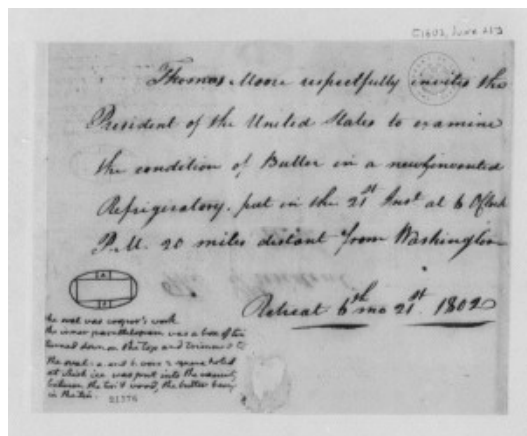 [1802, June 21]
Thomas Moore respectfully invites the
President of the United States to examine
the condition of Butter in a newly invented
Refrigeratory. put in the 21st Inst at 6 OClock
P.M. 20 miles distant from Washington
Retreat 6th mo 21st. 1802
the oval was cooper's work
the inner parallelogram was a box of tin
turned down on the top and
the oval: a and b were 2 square holes
at which ice was put into the vacuity
between the tin & wood, the butter being
in the tin.
21376